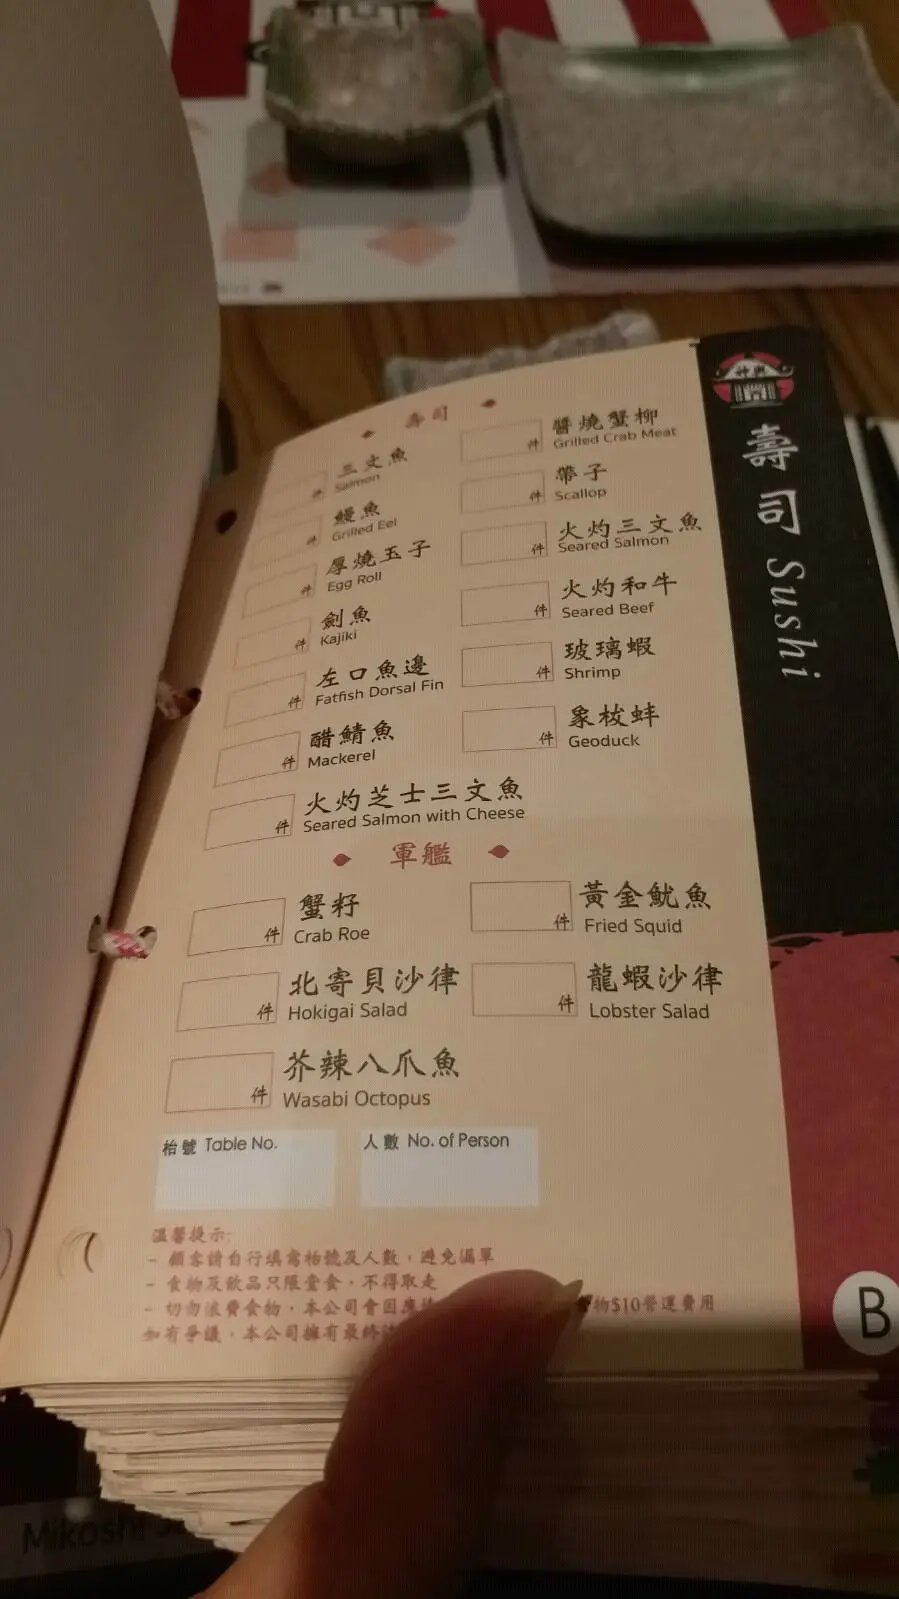 壽司
三文魚
Salmon
件
鰻魚
Grilled Eel
件
厚燒玉子
Egg Roll
件
劍魚
Kajiki
件
左口魚邊
Fatfish Dorsal Fin
件
醋鯖魚
Mackerel
件
火灼芝士三文魚
Seared Salmon with Cheese
件
醬燒蟹柳
Grilled Crab Meat
件
帶子
Scallop
件
火灼三文魚
Seared Salmon
件
火灼和牛
Seared Beef
件
玻璃蝦
Shrimp
件
象梭蚌
Geoduck
件
軍艦
蟹籽
Crab Roe
件
黃金魷魚
Fried Squid
件
北寄貝沙律
Hokigai Salad
件
龍蝦沙律
Lobster Salad
件
芥辣八爪魚
Wasabi Octopus
件
枱號 Table No.
人數 No. of Person
溫馨提示:
- 顧客請自行填寫枱號及人數，避免漏單
- 食物及飲品只限堂食，不得取走
- 切勿浪費食物，本公司會因應 物$10營運費用
如有爭議，本公司擁有最終
神輿
壽司 Sushi
B
Mikoshi